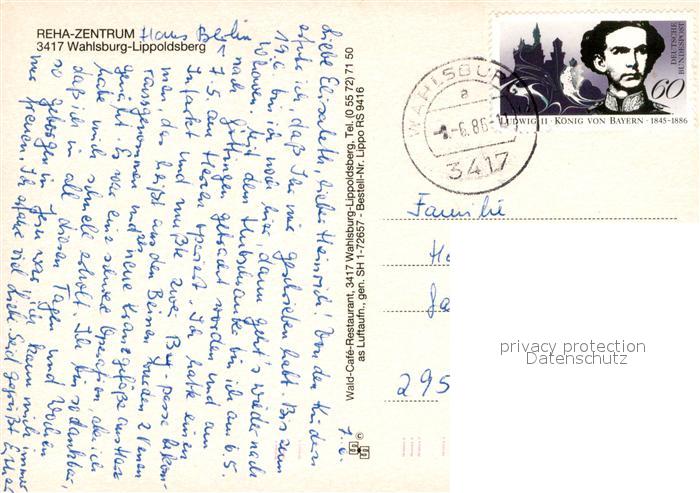 REHA-ZENTRUM
3417 Wahlsburg-Lippoldsberg
Haus Berlin
7. 6.
Liebe Elisabeth, lieber Heinrich! Von den Kindern
ich, daß Ihr mir geschrieben habt. Bis zum
19.6. bin ich noch hier, dann geht's wieder nach
Mit dem Hubschrauber bin ich am 6.5.
nach Göttingen gebracht worden und am
7.5. am Herzen operiert. Ich hatte einen
Infarkt und mußte zwei Bypasse bekom-
men, das heißt aus den Beinen wurden 2 Venen
rausgenommen und neue Kranzgefäße
gemacht. Es war eine schwere Operation, aber ich
habe mich schnell erholt. Ich bin so dankbar,
daß ich in all diesen Tagen und Wochen
so geborgen in war. Ich kann mich immer
nur freuen. Ich Seid gegrüßt
Wald-Café-Restaurant, 3417 Wahlsburg-Lippoldsberg, Tel. (0 55 72) 71 50
as Luftaufn., gen. SH 1-72657 - Bestell-Nr. Lippo RS 9416
©
WAHLSBURG
a
-6.86-
3417
DEUTSCHE
BUNDESPOST
60
LUDWIG II · KÖNIG VON BAYERN · 1845-1886
Familie
295
privacy protection
Datenschutz